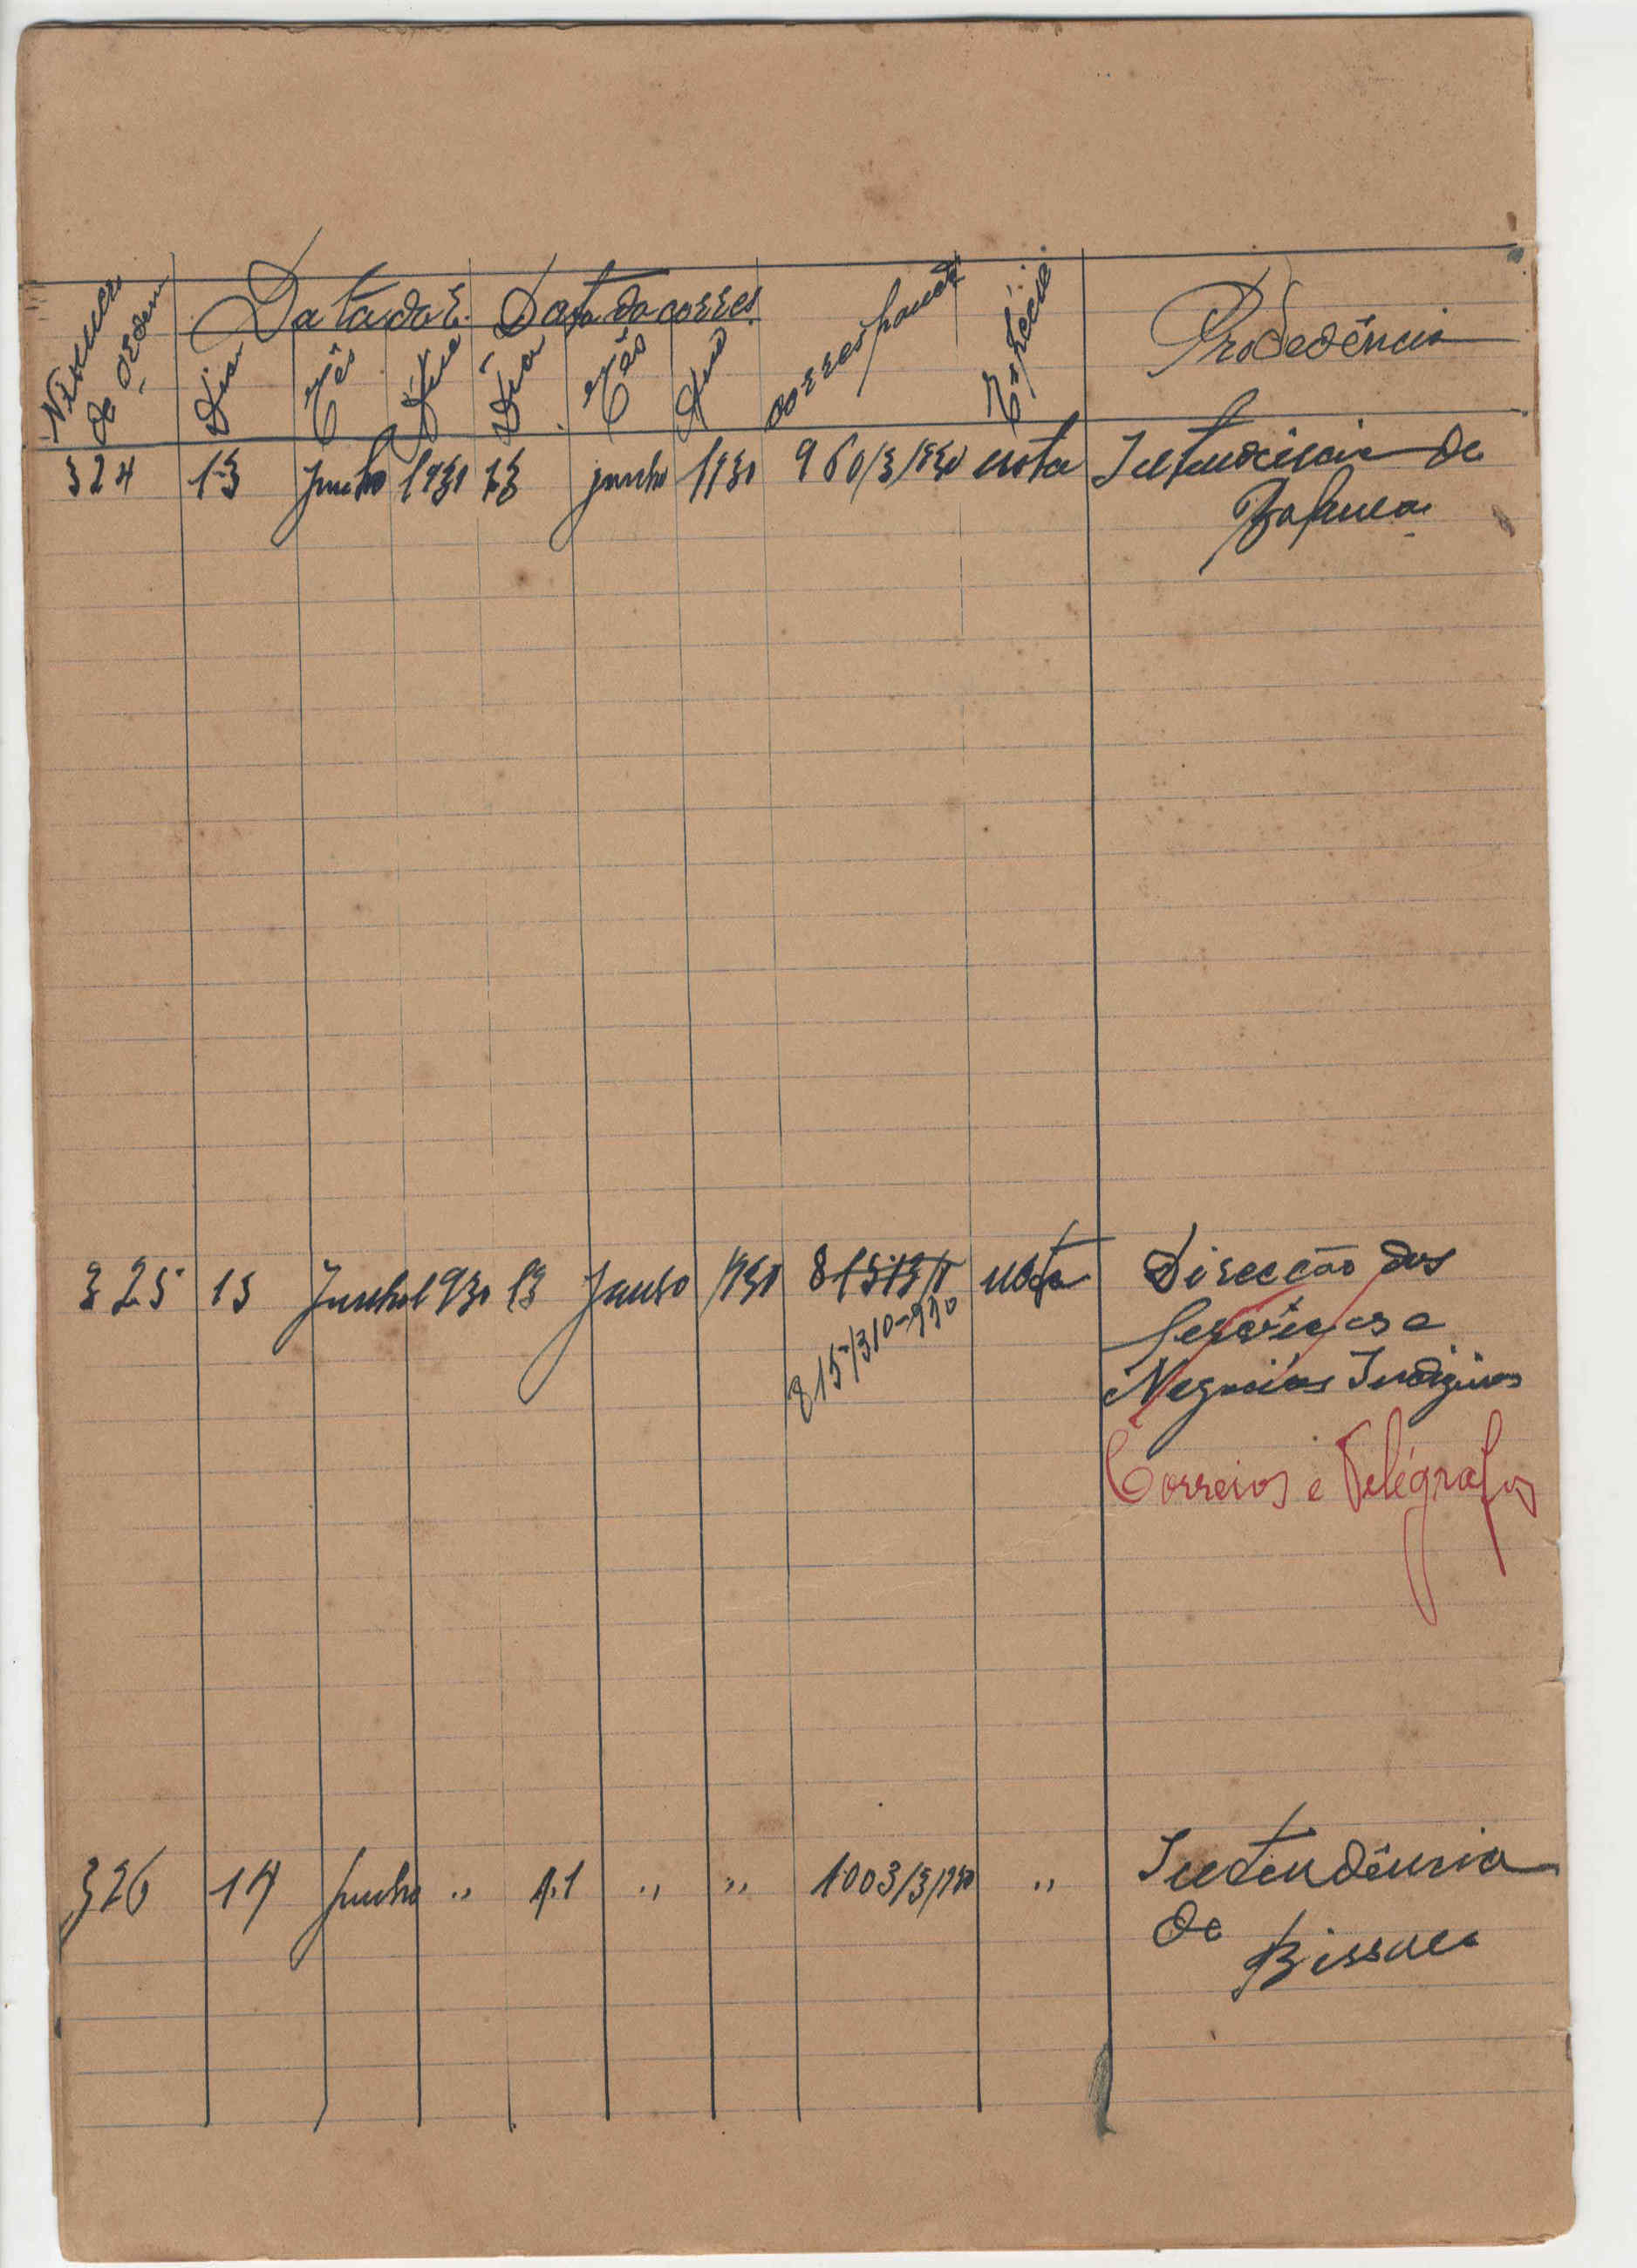 Número de ordem
Data da E. Data da corres.
Dia Mês Ano Dia Mês Ano correspondª Espécie Procedência
324 13 Junho 1930 13 junho 1930 960/3/930 nota Intendência de
Bafata
325 13 Junho 1930 13 Junho 1930 nota Direcção dos
815/310-930 Serviços e
Negocios Indiginas
Correios e Telégrafos
326 14 Junho " 11 " " 1003/3/930 " Intendência
de
Bissau